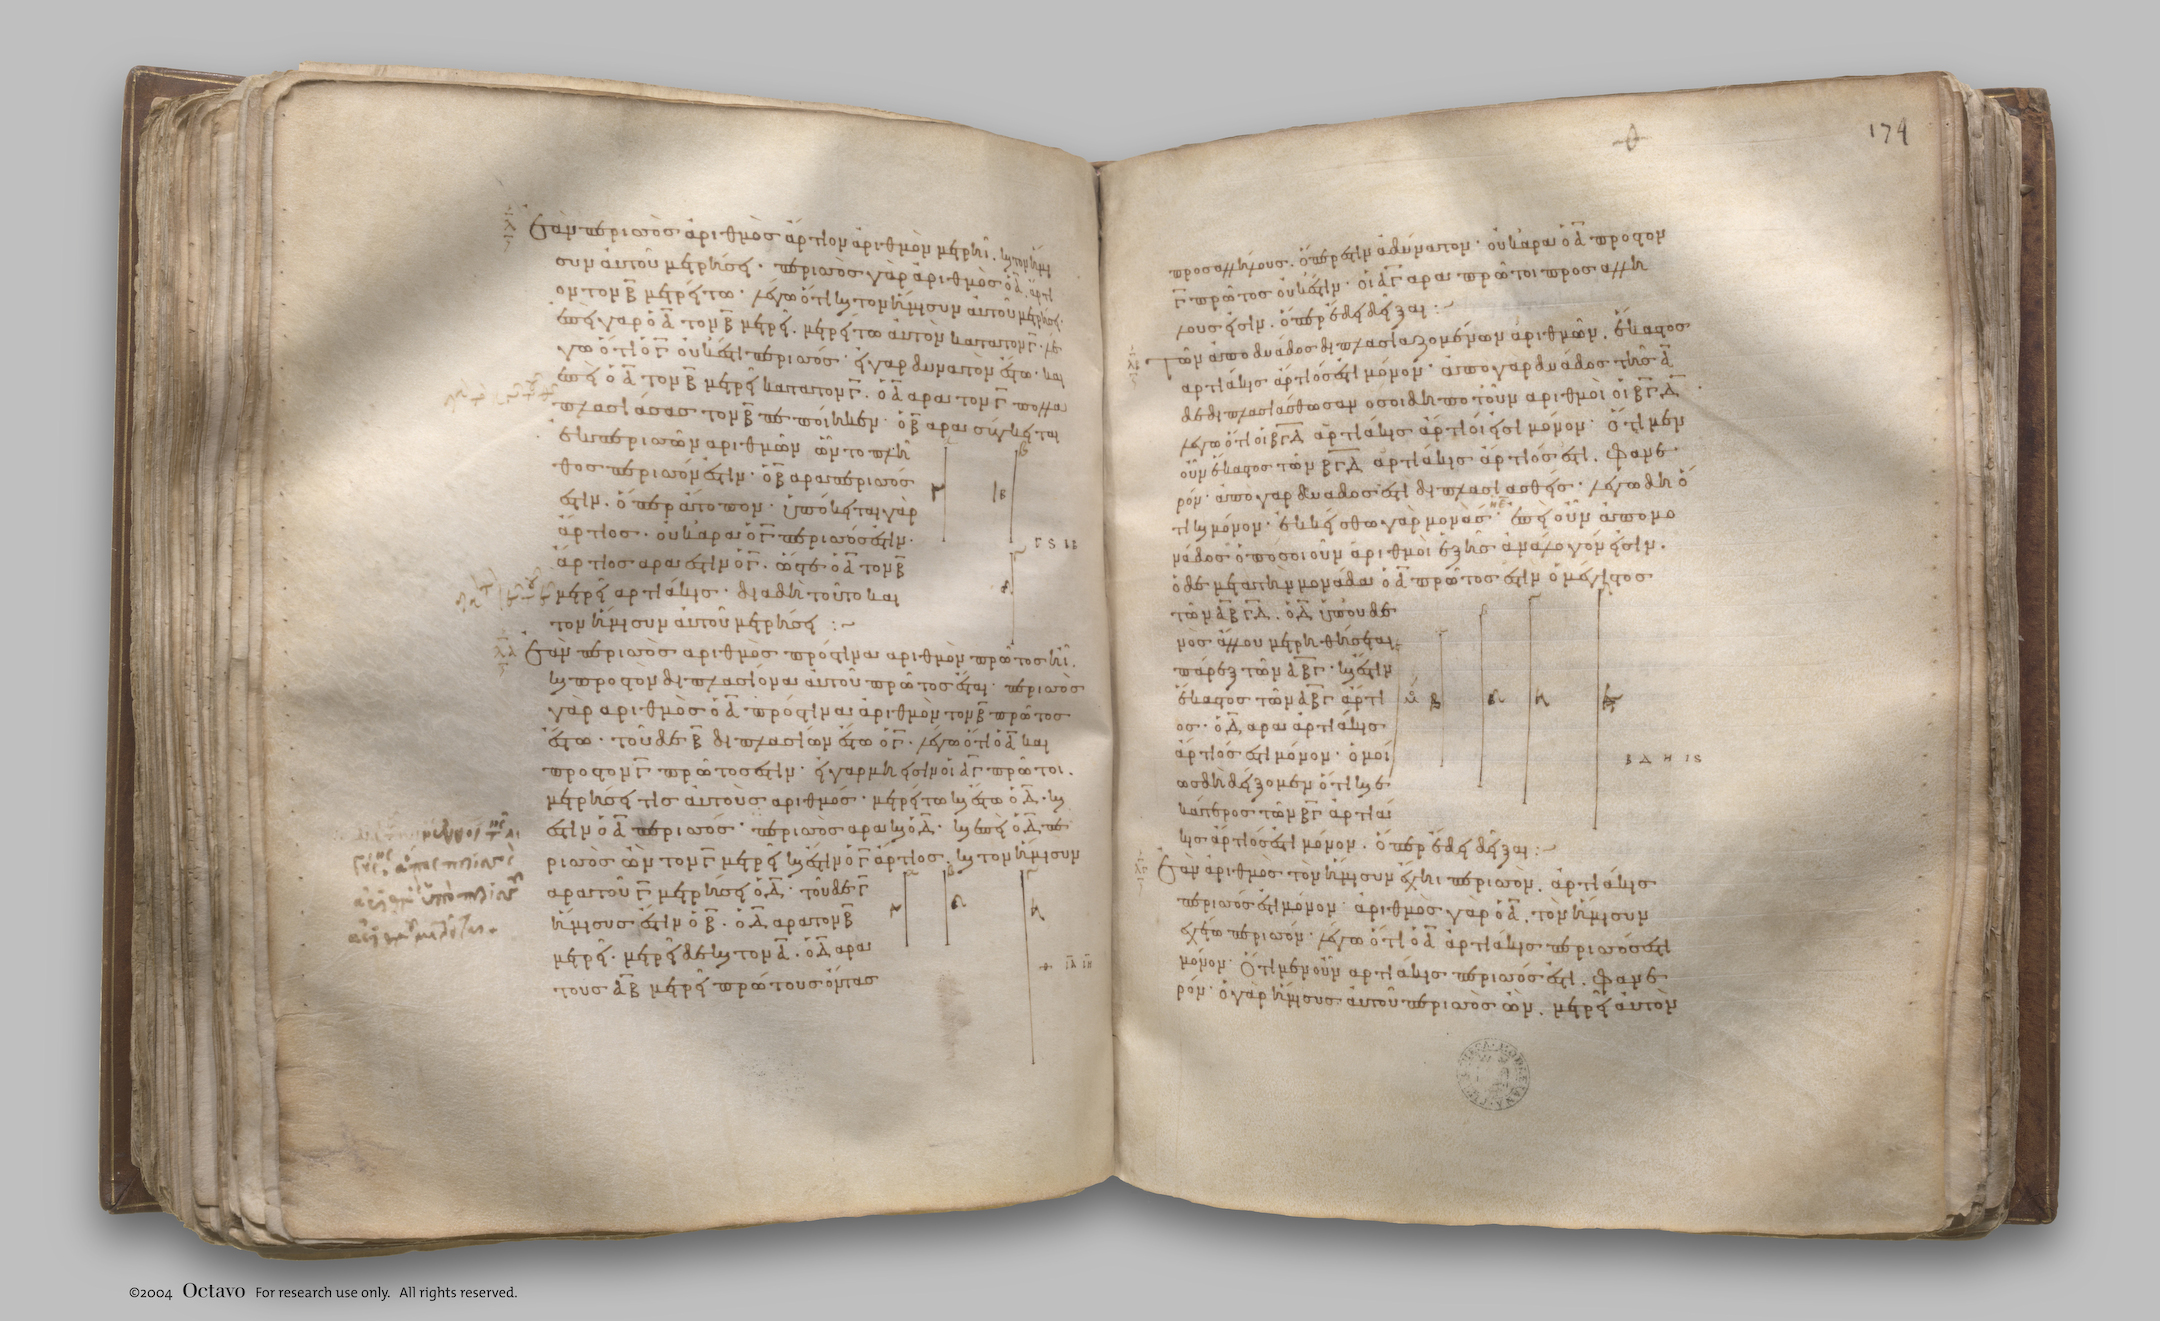 Ἐὰν περισσὸς ἀριθμὸς ἄρτιον ἀριθμὸν μετρῆι, καὶ τὸν ἥμι
συν αὐτοῦ μετρήσει· περισσὸς γὰρ ἀριθμὸς ὁ Α̅ ἄρτι
ον τὸν Β̅ μετρείτω· λέγω ὅτι καὶ τὸν ἥμισυν αὐτοῦ μετρήσει·
ἐπεὶ γὰρ ὁ Α̅ τὸν Β̅ μετρεῖ. μετρείτω αὐτὸν κατὰ τὸν Γ̅· λέ
γω ὅτι ὁ Γ̅ οὐκ ἔστι περισσός· εἰ γὰρ δυνατὸν ἔστω· καὶ
ἐπεὶ ὁ Α̅ τὸν Β̅ μετρεῖ κατὰ τὸν Γ̅. ὁ Α̅ ἄρα τὸν Γ̅ πολλα
πλασιάσας τὸν Β̅ πεποίηκεν· ὁ Β̅ ἄρα σύγκειται
ἐκ περισσῶν ἀριθμῶν ὧν τὸ πλῆ
θος περισσόν ἐστιν· ὁ Β̅ ἄρα περισσός
ἐστιν. ὅπερ ἄτοπον· ὑπόκειται γὰρ
ἄρτιος· οὐκ ἄρα ὁ Γ̅ περισσός ἐστιν·
ἄρτιος ἄρα ἐστὶν ὁ Γ̅. ὥστε ὁ Α̅ τὸν Β̅
μετρεῖ ἀρτιάκις· διὰ δὴ τοῦτο καὶ
τὸν ἥμισυν αὐτοῦ μετρήσει :~
λα
Ἐὰν περισσὸς ἀριθμὸς πρός τινα ἀριθμὸν πρῶτος ἦι.
καὶ πρὸς τὸν διπλασίονα αὐτοῦ πρῶτος ἔσται· περισσὸς
γὰρ ἀριθμὸς ὁ Α̅ πρός τινα ἀριθμὸν τὸν Β̅ πρῶτος
ἔστω· τοῦ δὲ Β̅ διπλασίων ἔστω ὁ Γ̅· λέγω ὅτι ὁ Α̅ καὶ
πρὸς τὸν Γ̅ πρῶτος ἐστιν· εἰ γὰρ μή εἰσιν οἱ Α̅Γ̅ πρῶτοι.
μετρήσει τις αὐτοὺς ἀριθμός· μετρείτω καὶ ἔστω ὁ Δ̅· καὶ
ἐστιν ὁ Α̅ περισσός· περισσὸς ἄρα καὶ ὁ Δ̅· καὶ ἐπεὶ ὁ Δ̅ πε
ρισσὸς ὢν τὸν Γ̅ μετρεῖ καὶ ἐστιν ὁ Γ̅ ἄρτιος. καὶ τὸν ἥμισυν
ἄρα τοῦ Γ̅ μετρήσει ὁ Δ̅· τοῦ δὲ Γ̅
ἥμισυς ἐστιν ὁ Β̅· ὁ Δ̅ ἄρα τὸν Β̅
μετρεῖ· μετρεῖ δὲ καὶ τὸν Α̅· ὁ Δ̅ ἄρα
τοὺς Α̅Β̅ μετρεῖ πρώτους ὄντας
174
πρὸς ἀλλήλους. ὅπερ ἐστὶν ἀδύνατον· οὐκ ἄρα ὁ Α̅ πρὸς τὸν
Γ̅ πρῶτος οὐκ ἔστιν· οἱ Α̅Γ̅ ἄρα πρῶτοι πρὸς ἀλλή
λους εἰσίν. ὅπερ ἔδει δεῖξαι :~
Τῶν ἀπὸ δυάδος διπλασιαζομένων ἀριθμῶν. ἕκαστος
ἀρτιάκις ἄρτιός ἐστι μόνον· ἀπὸ γὰρ δυάδος τῆς Α̅
δεδιπλασιάσθωσαν ὁσοιδηποτοῦν ἀριθμοὶ οἱ Β̅Γ̅Δ̅·
λέγω ὅτι οἱ Β̅Γ̅Δ̅ ἀρτιάκις ἄρτιοί εἰσι μόνον· ὅτι μὲν
οὖν ἕκαστος τῶν Β̅Γ̅Δ̅ ἀρτιάκις ἄρτιός ἐστι. φανε
ρόν· ἀπὸ γὰρ δυάδος ἐστὶ διπλασιασθείς· λέγω δὴ ὅ
τι καὶ μόνον· ἐκκείσθω γὰρ μονάς· ἐπεὶ οὖν ἀπὸ μο
νάδος ὁποσοιοῦν ἀριθμοὶ ἑξῆς ἀνάλογόν εἰσιν.
ὁ δὲ μετὰ τὴν μονάδα ὁ Α̅ πρῶτος ἐστιν ὁ μέγιστος
τῶν Α̅Β̅Γ̅Δ̅. ὁ Δ̅ ὑπ' οὐδε
νὸς ἄλλου μετρηθήσεται
πάρεξ τῶν Α̅Β̅Γ̅· καὶ ἐστιν
ἕκαστος τῶν Α̅Β̅Γ̅ ἄρτι
ος· ὁ Δ̅ ἄρα ἀρτιάκις
ἄρτιός ἐστι μόνον· ὁμοί
ως δὴ δείξομεν ὅτι καὶ ἑ
κάτερος τῶν Β̅Γ̅ ἀρτιά
κις ἄρτιός ἐστι μόνον. ὅπερ ἔδει δεῖξαι :~
Β Δ Η ΙϚ
Ἐὰν ἀριθμὸς τὸν ἥμισυν ἔχηι περισσόν. ἀρτιάκις
περισσός ἐστι μόνον· ἀριθμὸς γὰρ ὁ Α̅. τὸν ἥμισυν
ἐχέτω περισσόν· λέγω ὅτι ὁ Α̅ ἀρτιάκις περισσός ἐστι
μόνον· Ὅτι μὲν οὖν ἀρτιάκις περισσός ἐστι. φανε
ρόν· ὁ γὰρ ἥμισυς αὐτοῦ περισσὸς ὢν. μετρεῖ αὐτὸν
©2004 Octavo For research use only. All rights reserved.